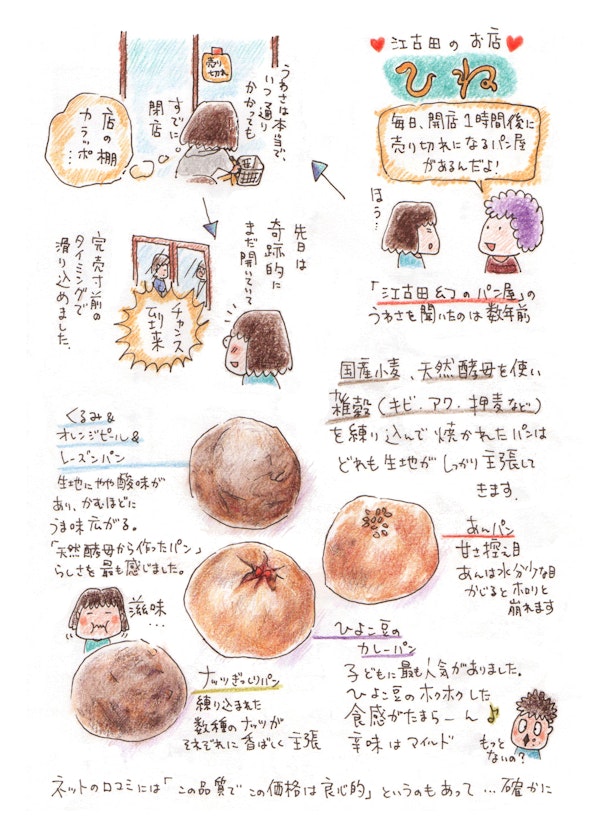 江古田のお店
ひね
毎日、開店1時間後に
売り切れになるパン屋
があるんだよ！
ほう…
「江古田幻のパン屋」の
うわさを聞いたのは数年前
うわさは本当で、
いつ通り
かかっても
すでに
閉店
売り切れ
店の棚
カラッポ…
先日は
奇跡的に
まだ開いていて
チャンス
到来
完売寸前の
タイミングで
滑り込めました。
国産小麦、天然酵母を使い
雑穀(キビ・アワ・押麦など)
を練り込んで焼かれたパンは
どれも生地がしっかり主張して
きます。
くるみ&
オレンジピール&
レーズンパン
生地にやや酸味が
あり、かむほどに
うま味広がる。
「天然酵母から作ったパン」
らしさを最も感じました。
滋味…
あんパン
甘さ控え目
あんは水分少な目
かじるとホロリと
崩れます
ひよこ豆の
カレーパン
子どもに最も人気がありました。
ひよこ豆のホクホクした
食感がたまらーん♪
辛味はマイルド
もっと
ないの？
ナッツぎっしりパン
練り込まれた
数種のナッツが
それぞれに香ばしく主張
ネットの口コミには「この品質でこの価格は良心的」というのもあって…確かに